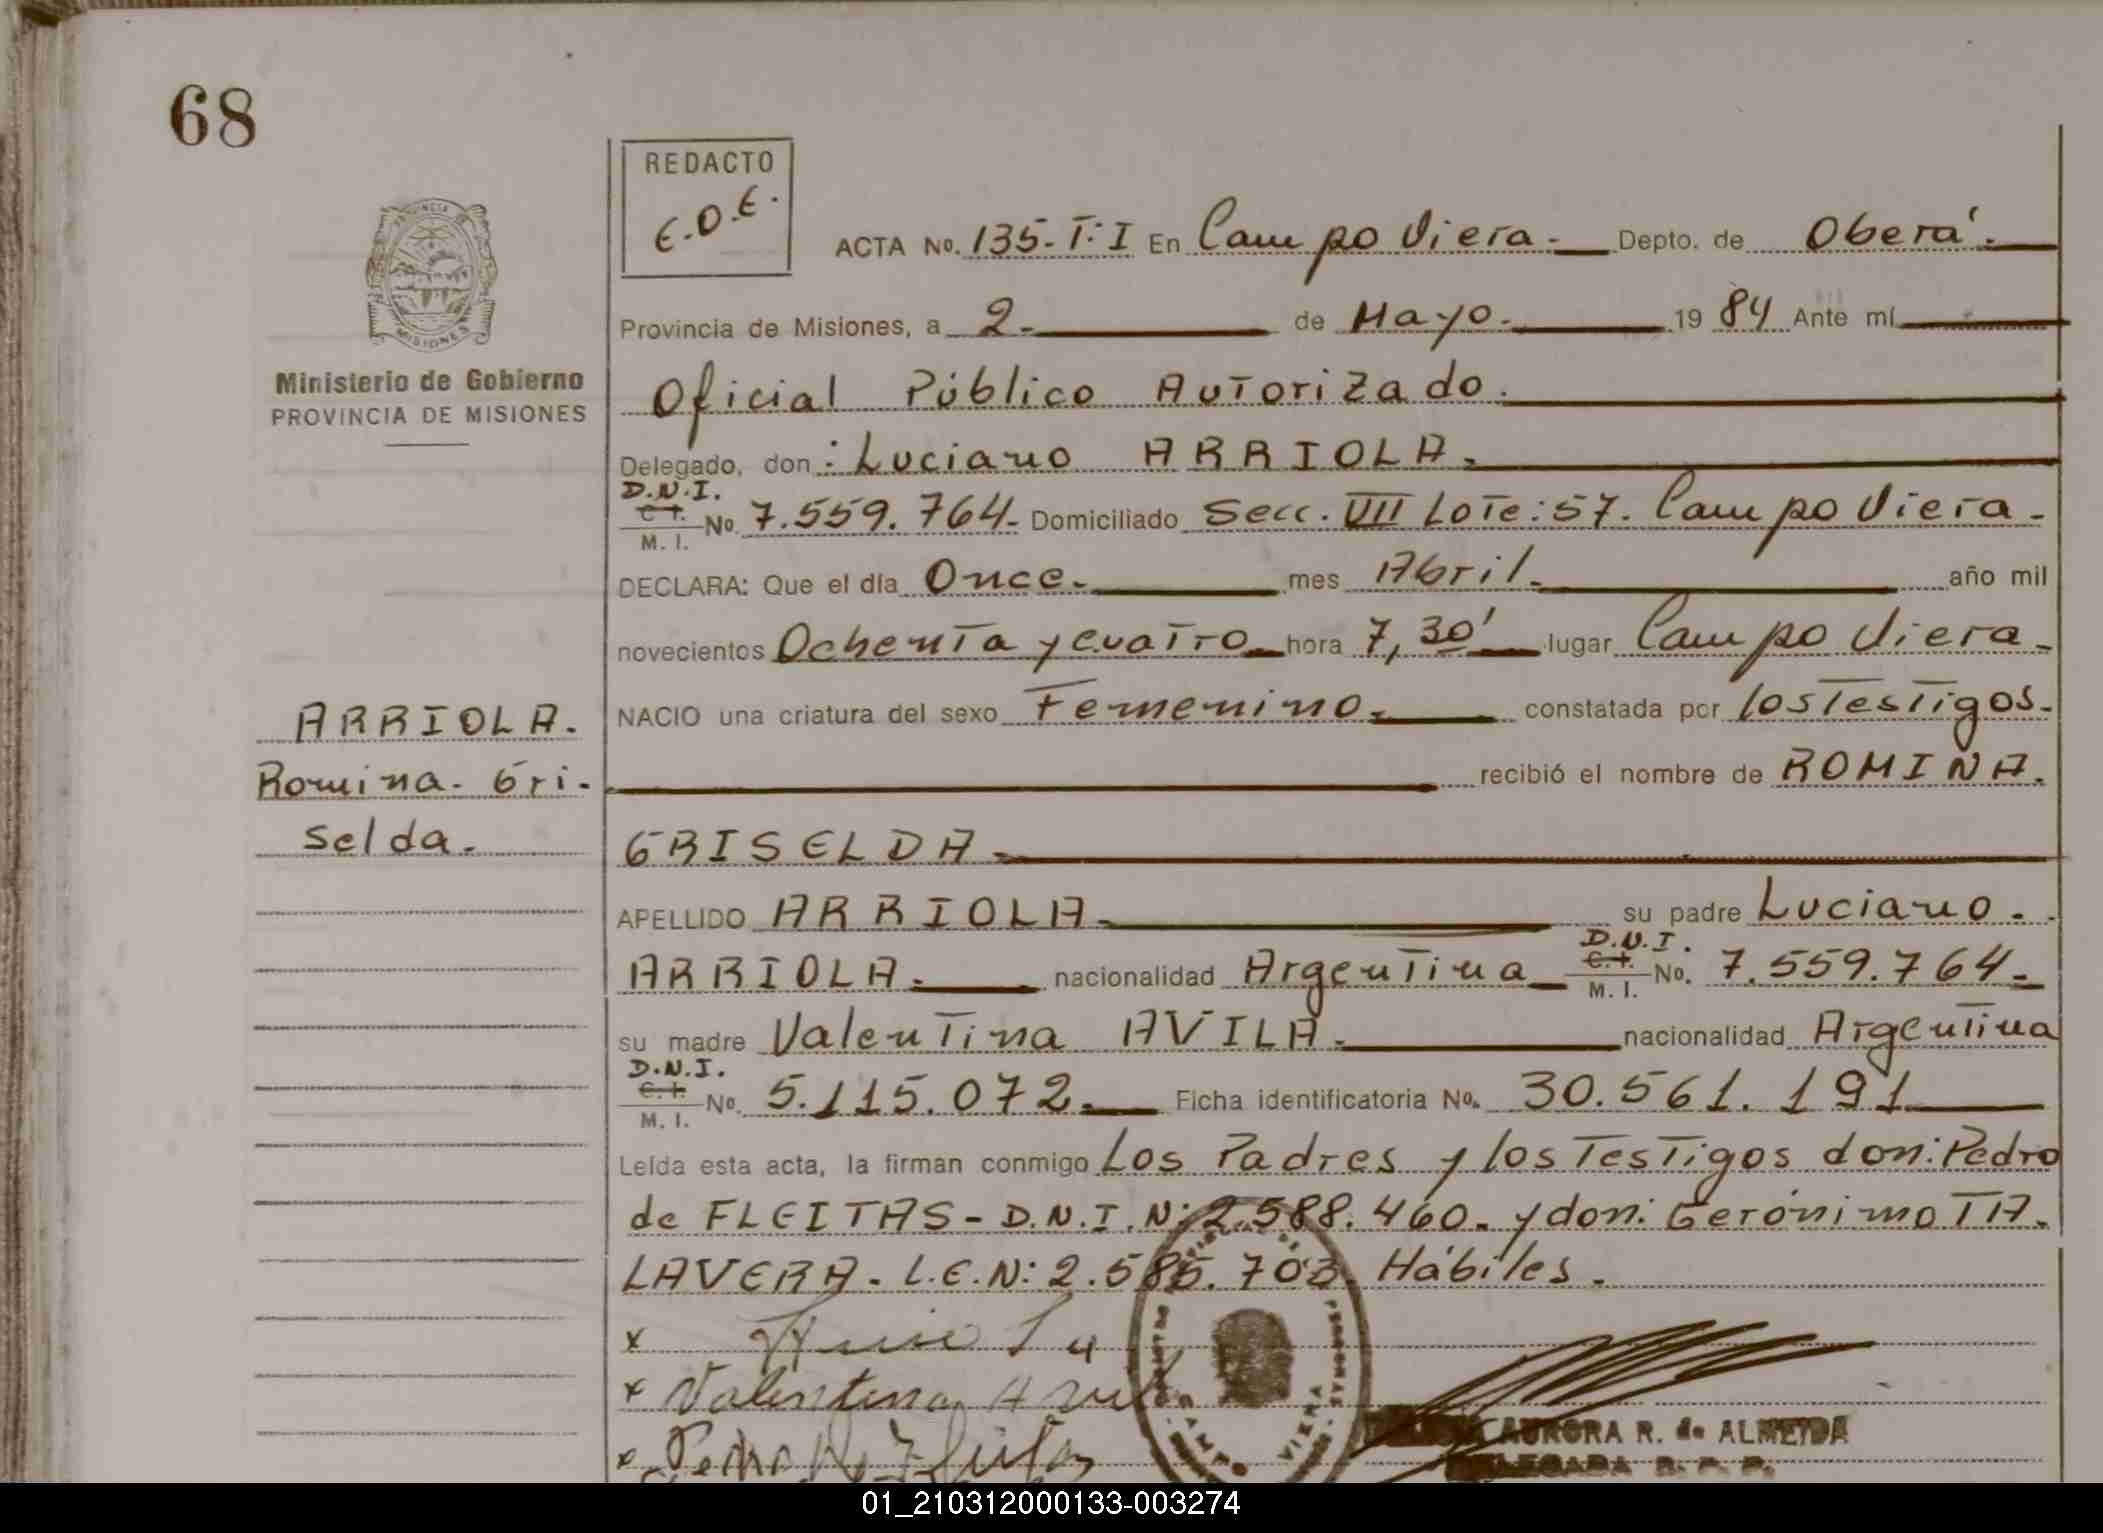 68
REDACTO
E.O.E.
PROVINCIA DE
MISIONES
Ministerio de Gobierno
PROVINCIA DE MISIONES
ACTA No. 135-T:I En Campo Viera.- Depto. de Oberá.-
Provincia de Misiones, a 2.- de Mayo.- 19 84 Ante mí
Oficial Público Autorizado.
Delegado, don: Luciano ARRIOLA.
D.N.I.
C. I.
M. I.
No. 7.559.764.- Domiciliado Secc. VII Lote: 57. Campo Viera.-
DECLARA: Que el día Once.- mes Abril.- año mil
novecientos Ochenta y cuatro.- hora 7,30' lugar Campo Viera.-
NACIO una criatura del sexo Femenino.- constatada por los Testigos.-
recibió el nombre de ROMINA.
GRISELDA.-
ARRIOLA.
Romina. Gri-
selda.
APELLIDO ARRIOLA.- su padre Luciano.-
ARRIOLA.- nacionalidad Argentina
D.N.I.
C. I.
M. I.
No. 7.559.764.-
su madre Valentina AVILA.- nacionalidad Argentina
D.N.I.
C. I.
M. I.
No. 5.115.072.- Ficha identificatoria No. 30.561.191
Leída esta acta, la firman conmigo Los Padres y los Testigos don: Pedro
de FLEITAS - D.N.I.N: 2.588.460. y don: Gerónimo TA-
LAVERA. L.E.N: 2.585.703. Hábiles.
x
x Valentina Avila
x Pedro
VIERA
AURORA R. de ALMEYDA
DELEGADA R. P. P.
01_210312000133-003274